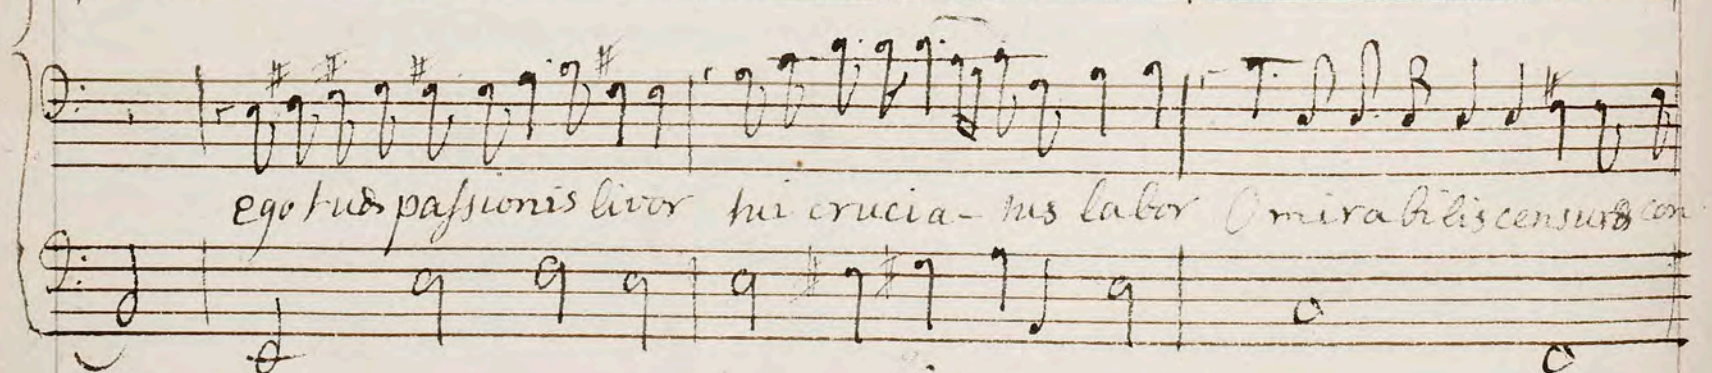 ego tuæ passionis livor tui crucia- tus labor O mirabilis censuræ con